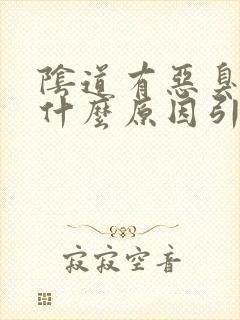 陰道有惡臭
什麼原因引
寂寂空音